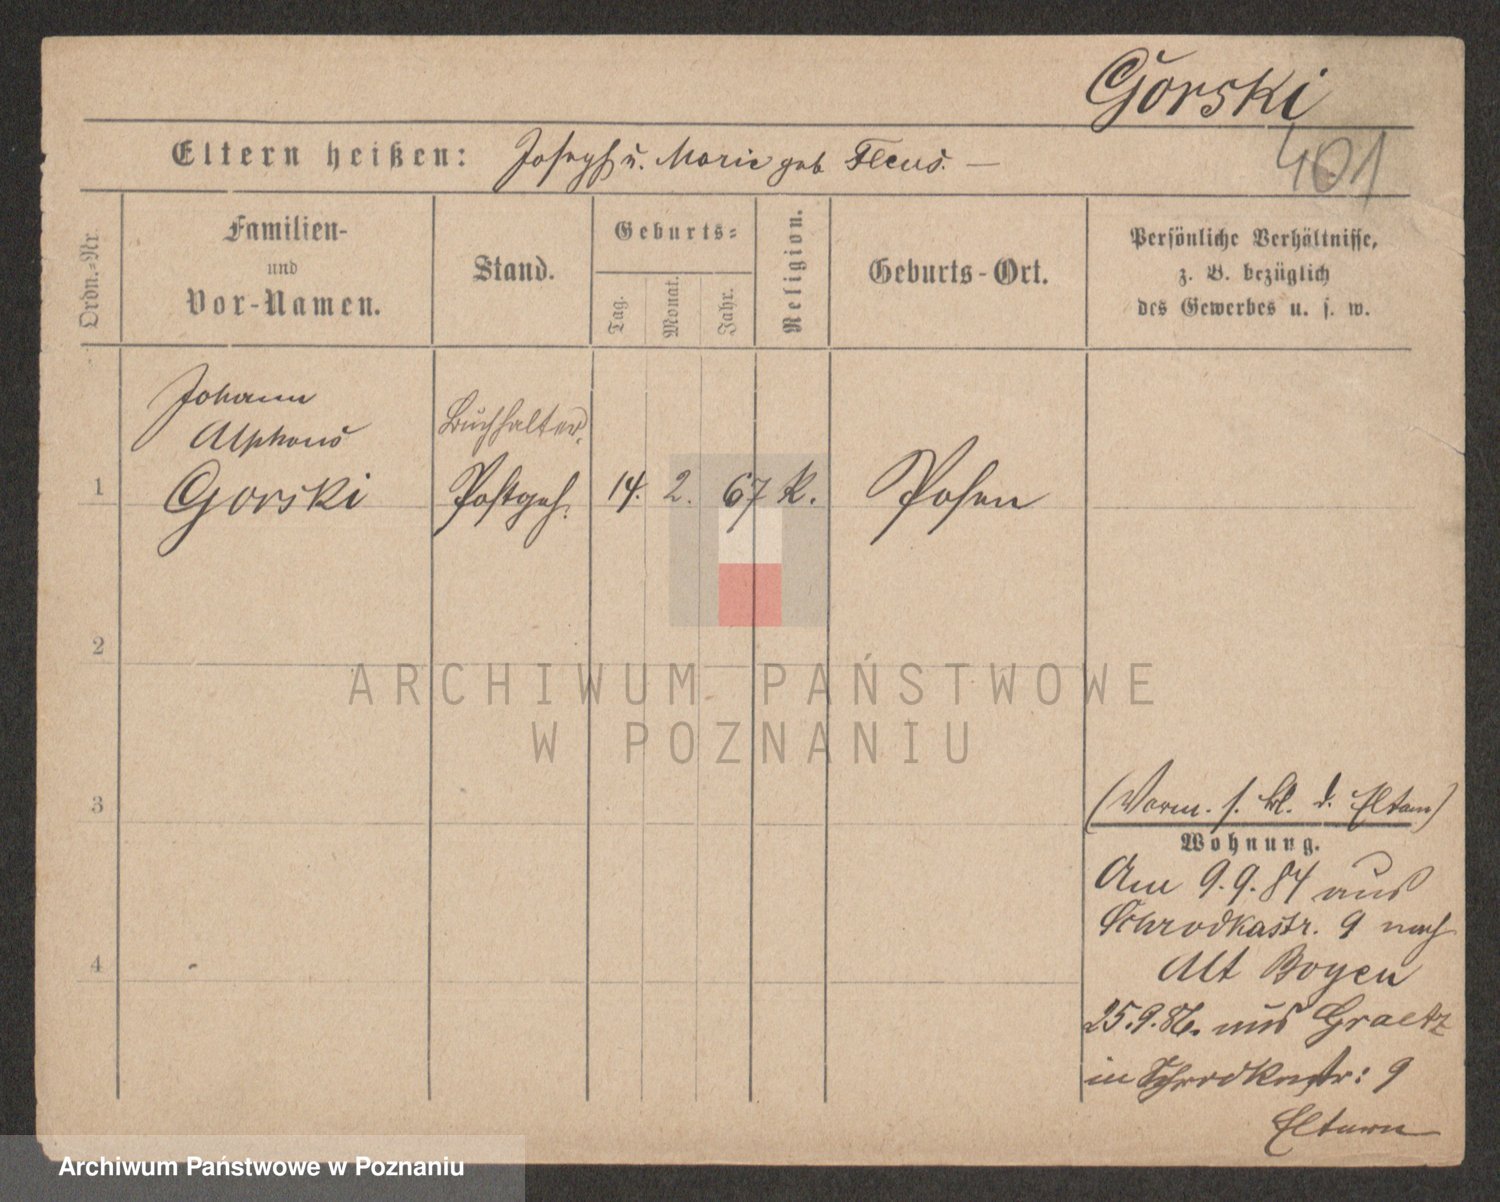 Górski
401
Eltern heißen: Joseph u. Marie geb Flens. —
Ordn.=Nr.
Familien-
und
Vor-Namen.
Stand.
Geburts=
Tag.
Monat.
Jahr.
Religion.
Geburts-Ort.
Persönliche Verhältnisse,
z. B. bezüglich
des Gewerbes u. s. w.
Johann
Alphons
1 Gorski
Buchhalter.
Postgeh. 14. 2. 67 K. Posen
2
3
4
ARCHIWUM PAŃSTWOWE
W POZNANIU
(Vorm. s. Bl. d. Eltern)
Wohnung.
Am 9.9.84 aus
Schrodkastr. 9 nach
Alt Boyen
25.9.86. aus Graetz
in Schrodkastr: 9
Eltern
Archiwum Państwowe w Poznaniu